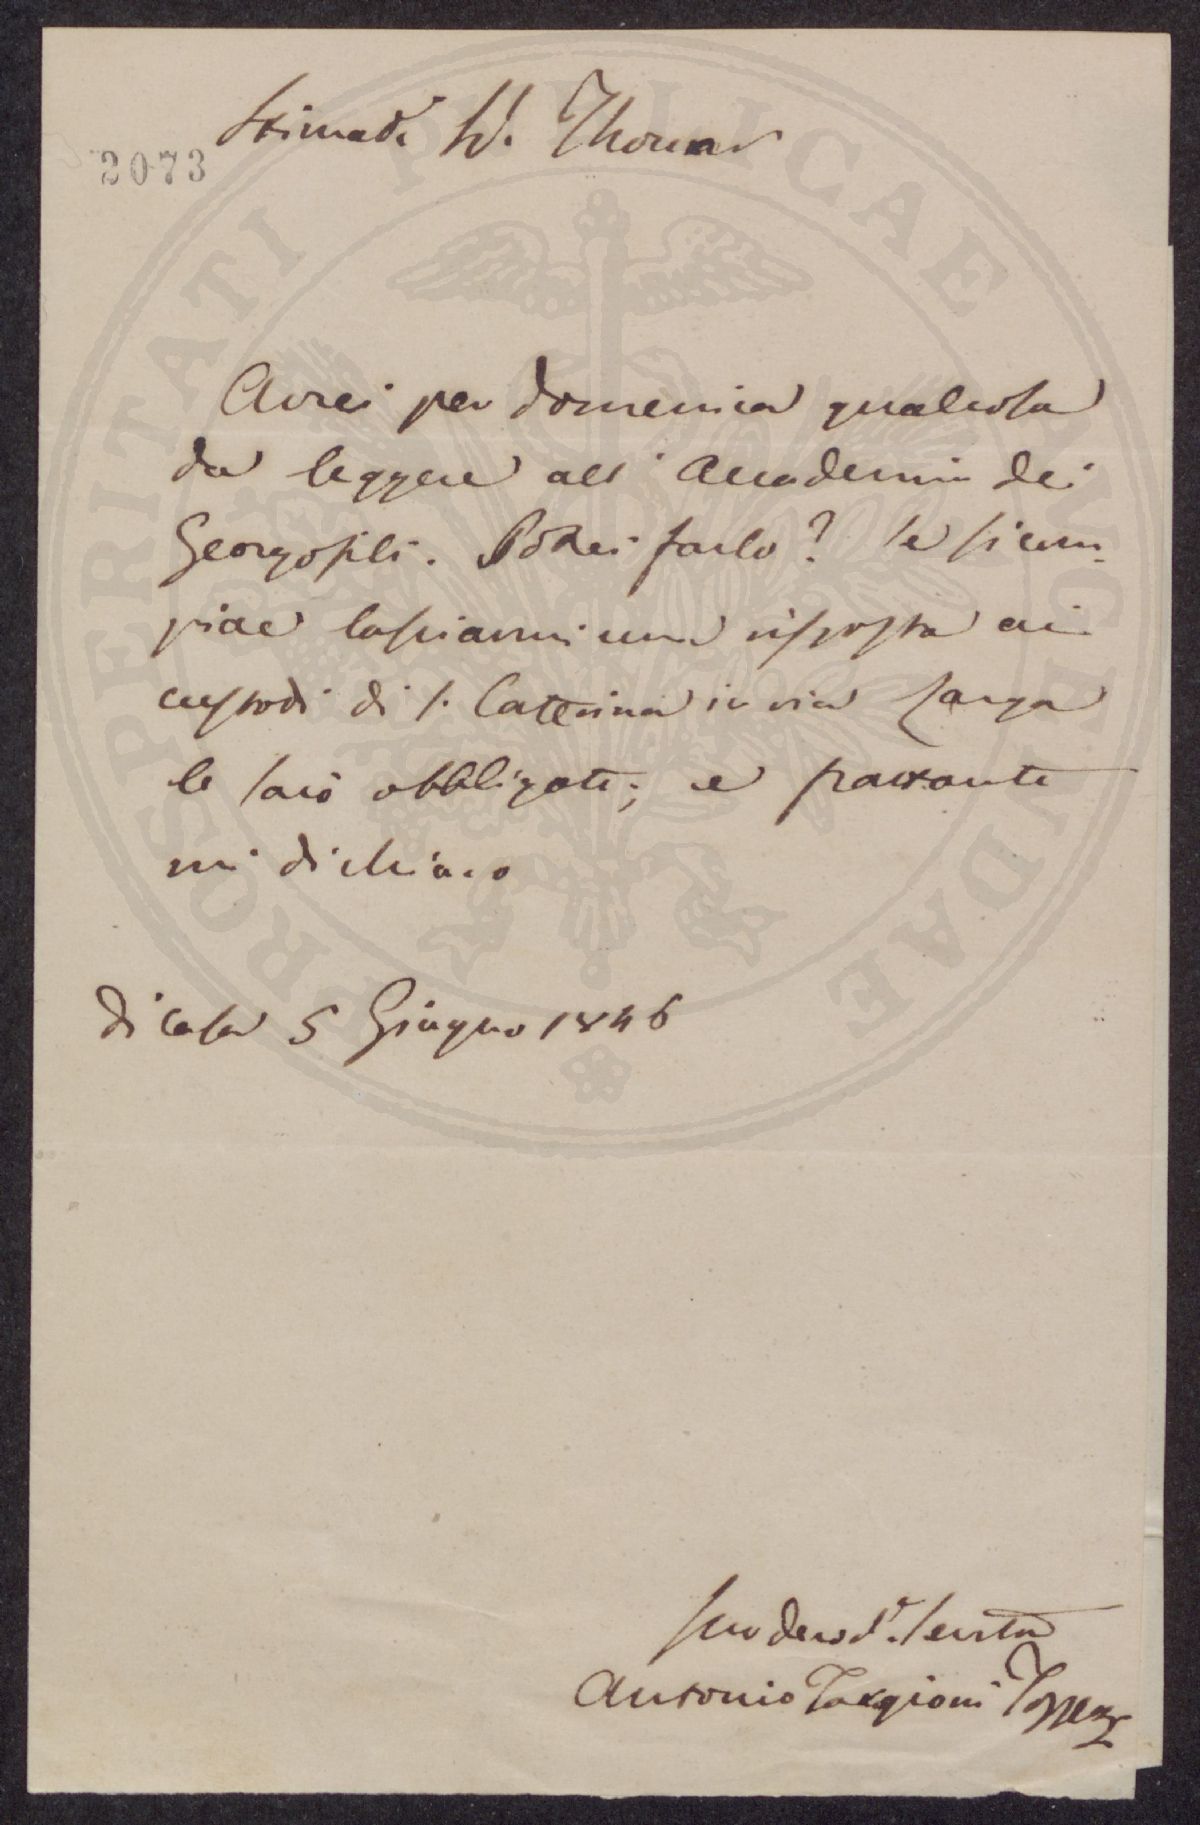 Stimat.
2073
Avrei per domenica qualcosa
da leggere all' Accademia dei
Georgofili. Potrei farlo? Se si com-
piace lasciarmi una risposta ai
custodi di S. Caterina in via Larga
le sarò obbligato; e frattanto
mi dichiaro
di casa 5 Giugno 1846
suo devot.
Antonio Targioni Tozzetti
PROSPERITATI PUBLICAE AUGENDAE